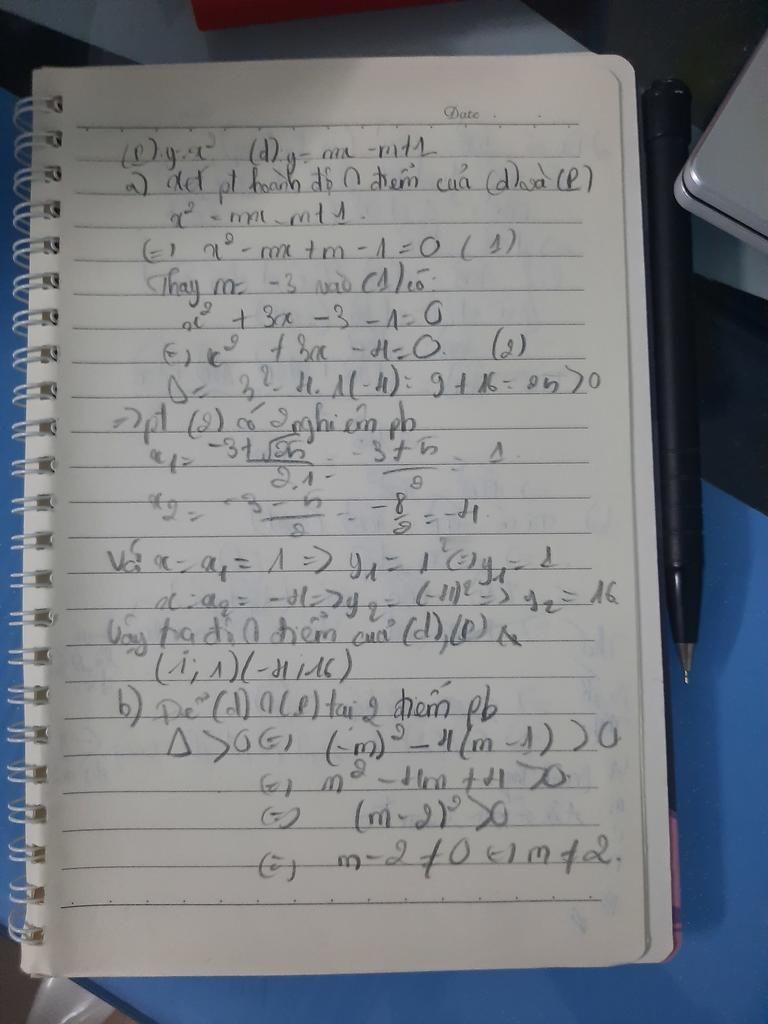 Date
(P): y = x² (d): y = mx - m + 1
a) Xét pt hoành độ ∩ điểm của (d) và (P)
x² = mx - m + 1.
⇔ x² - mx + m - 1 = 0 (1)
Thay m = -3 vào (1) có:
x² + 3x - 3 - 1 = 0
⇔ x² + 3x - 4 = 0. (2)
Δ = 3² - 4.1(-4) = 9 + 16 = 25 > 0
⇒ pt (2) có 2 nghiệm pb
x₁ = (-3 + √25)/(2.1) = (-3 + 5)/2 = 1
x₂ = (-3 - 5)/2 = -8/2 = -4.
Với x = x₁ = 1 ⇒ y₁ = 1² ⇔ y₁ = 1
x = x₂ = -4 ⇒ y₂ = (-4)² ⇒ y₂ = 16
Vậy tọa độ ∩ điểm của (d), (P) là
(1; 1) (-4; 16)
b) Để (d) ∩ (P) tại 2 điểm pb
Δ > 0 ⇔ (-m)² - 4(m - 1) > 0
⇔ m² - 4m + 4 > 0.
⇔ (m - 2)² > 0
⇔ m - 2 ≠ 0 ⇔ m ≠ 2.